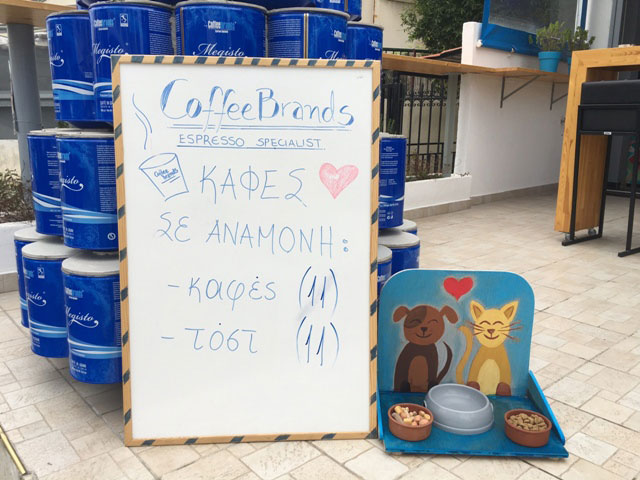 coffee brands
Megisto
Megisto
CoffeeBrands
ESPRESSO SPECIALIST
ΚΑΦΕΣ
ΣΕ ΑΝΑΜΟΝΗ:
- καφές (11)
- τόστ (11)
Megisto
Megisto
Megisto
Megisto